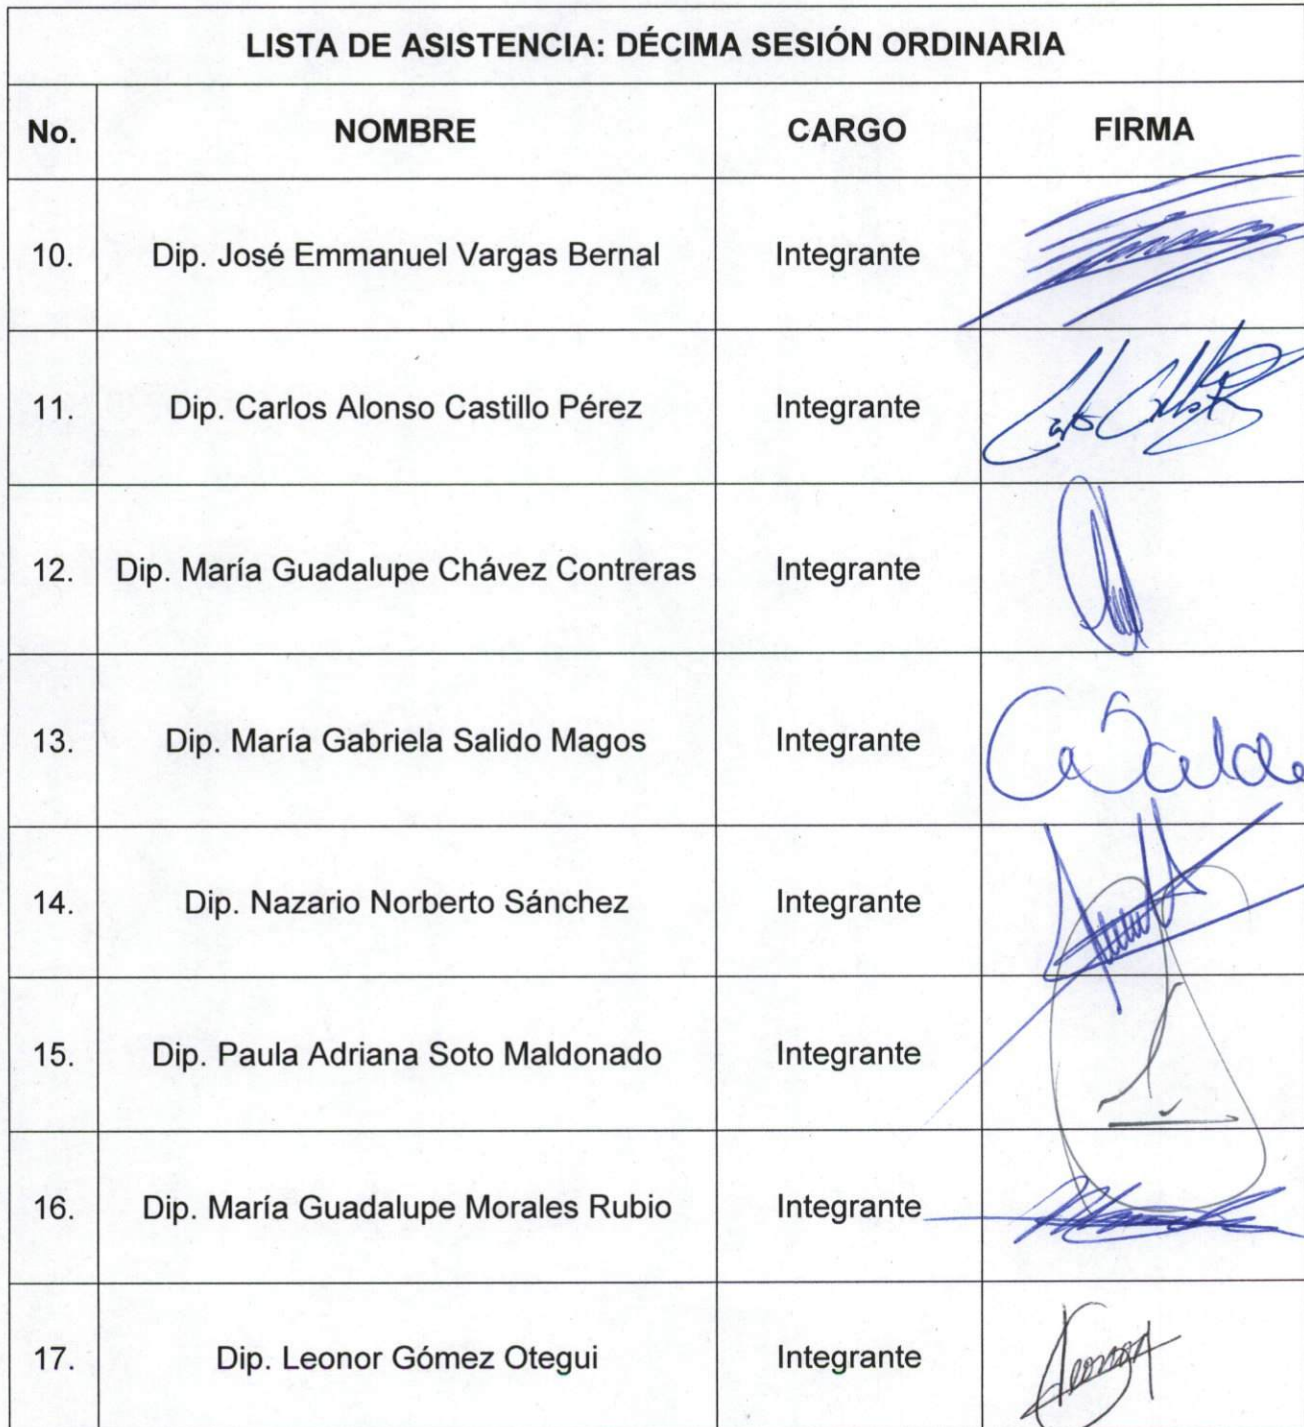 LISTA DE ASISTENCIA: DÉCIMA SESIÓN ORDINARIA
No. NOMBRE CARGO FIRMA
10. Dip. José Emmanuel Vargas Bernal Integrante
11. Dip. Carlos Alonso Castillo Pérez Integrante
12. Dip. María Guadalupe Chávez Contreras Integrante
13. Dip. María Gabriela Salido Magos Integrante
14. Dip. Nazario Norberto Sánchez Integrante
15. Dip. Paula Adriana Soto Maldonado Integrante
16. Dip. María Guadalupe Morales Rubio Integrante
17. Dip. Leonor Gómez Otegui Integrante Leonor